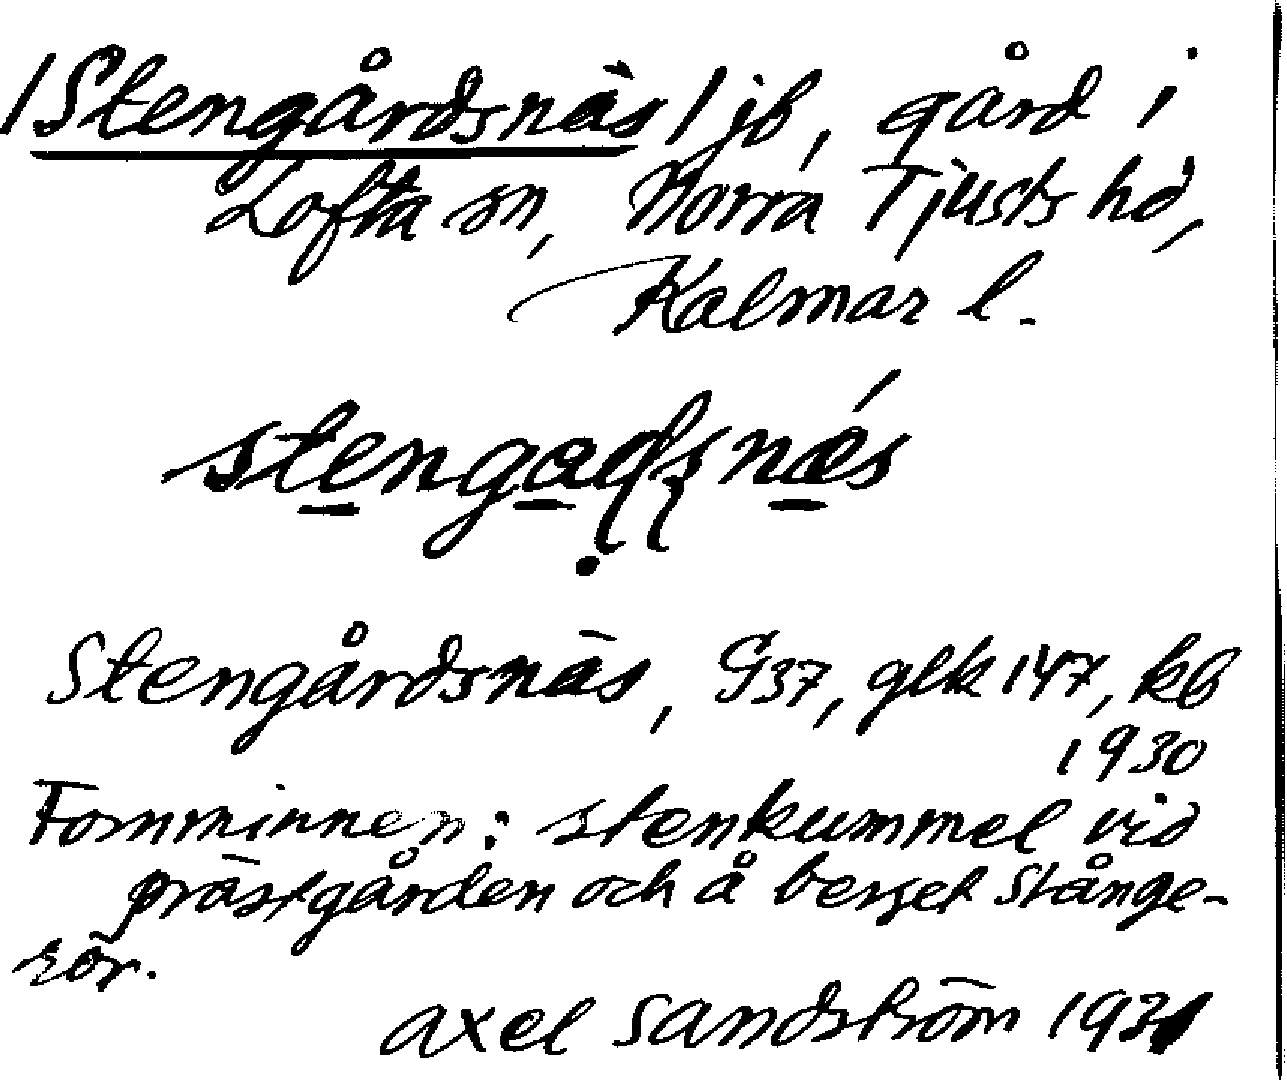 /Stengårdsnäs/ jb, gård i
Lofta sn, Norra Tjusts hd,
Kalmar l.
Stengårdsnäs, G37, glk 147, kb
1930
Fornminnen: stenkummel vid
prästgården och å berget Stånge-
rör.
Axel Sandström 1931